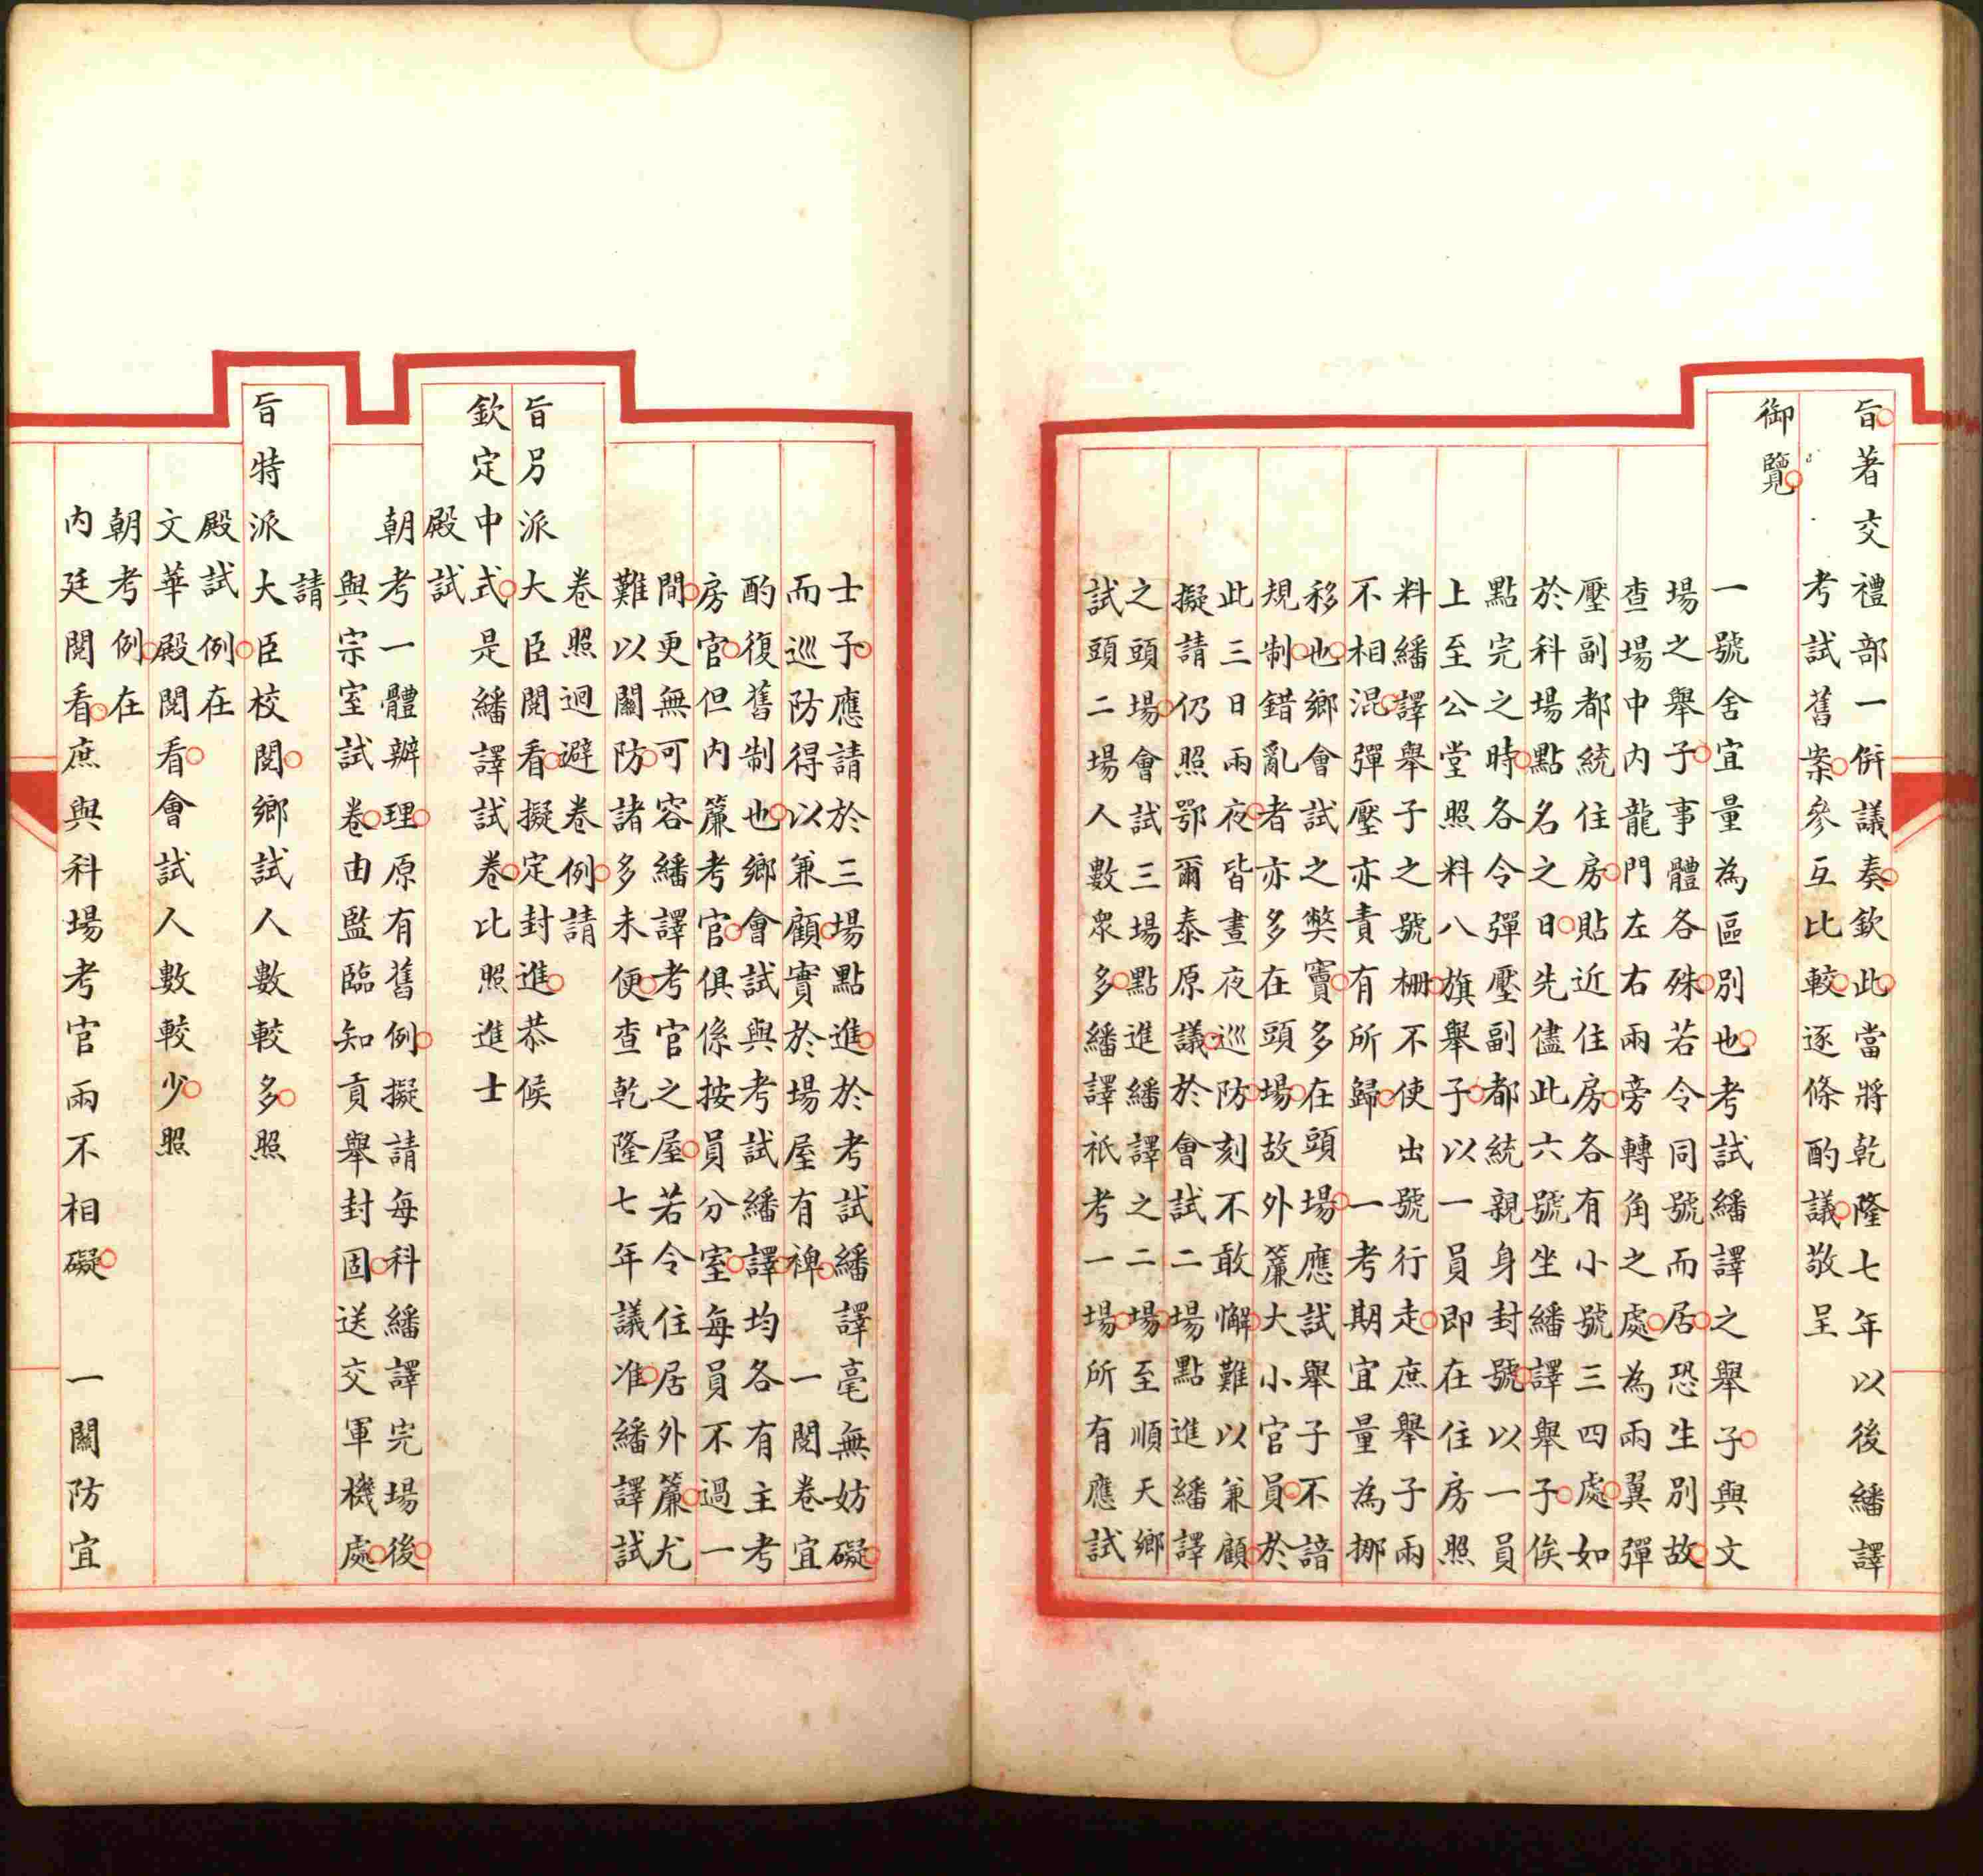 旨著交禮部一併議奏欽此當將乾隆七年以後繙譯
考試舊案參互比較逐條酌議敬呈
御覽
一號舍宜量為區別也考試繙譯之舉子與文
場之舉子事體各殊若令同號而居恐生別故
查場中內龍門左右兩旁轉角之處為兩翼彈
壓副都統住房貼近住房各有小號三四處如
於科場點名之日先儘此六號坐繙譯舉子俟
點完之時各令彈壓副都統親身封號以一員
上至公堂照料八旗舉子以一員即在住房照
料繙譯舉子之號柵不使出號行走庶舉子兩
不相混彈壓亦責有所歸 一考期宜量為挪
移也鄉會試之弊竇多在頭場應試舉子不諳
規制錯亂者亦多在頭場故外簾大小官員於
此三日兩夜皆晝夜巡防刻不敢懈難以兼顧
擬請仍照鄂爾泰原議於會試二場點進繙譯
之頭場會試三場點進繙譯之二場至順天鄉
試頭二場人數眾多繙譯祇考一場所有應試
士子應請於三場點進於考試繙譯毫無妨礙
而巡防得以兼顧實於場屋有裨 一閱卷宜
酌復舊制也鄉會試與考試繙譯均各有主考
房官但內簾考官俱係按員分室每員不過一
間更無可容繙譯考官之屋若令住居外簾尤
難以關防諸多未便查乾隆七年議准繙譯試
卷照迴避卷例請
旨另派大臣閱看擬定封進恭候
欽定中式是繙譯試卷比照進士
殿試
朝考一體辦理原有舊例擬請每科繙譯完場後
與宗室試卷由監臨知貢舉封固送交軍機處
請
旨特派大臣校閱鄉試人數較多照
殿試例在
文華殿閱看會試人數較少照
朝考例在
內廷閱看庶與科場考官兩不相礙 一關防宜